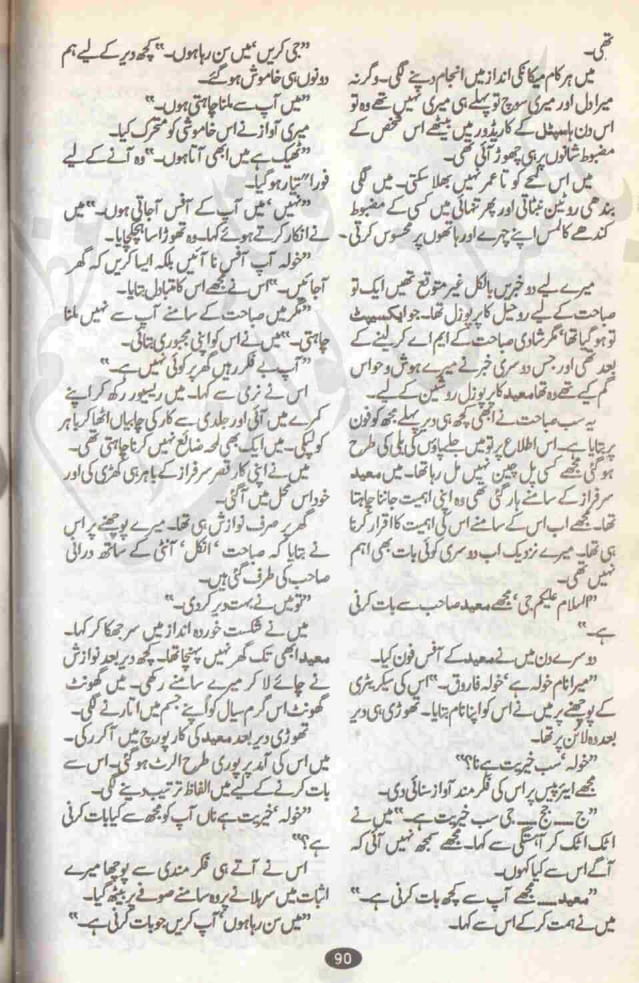 تھی۔
میں ہر کام میکانکی انداز میں انجام دینے لگی۔ وگرنہ
میرا دل اور میری سوچ تو پہلے ہی میری نہیں تھے وہ تو
اس دن ہاسپٹل کے کاریڈور میں بیٹھے اس شخص کے
مضبوط شانوں پر ہی چھوڑ آئی تھی۔
میں اس لمحے کو تا عمر نہیں بھلا سکتی۔ میں لگی
بندھی روٹین نبھاتی اور پھر تنہائی میں کسی کے مضبوط
کندھے کا لمس اپنے چہرے اور ہاتھوں پر محسوس کرتی۔
میرے لیے دو خبریں بالکل غیر متوقع تھیں ایک تو
صباحت کے لیے روحیل کا پرپوزل تھا۔ جو ایکسیپٹ
تو ہو گیا تھا مگر شادی صباحت کے ایم اے کر لینے کے
بعد تھی اور جس دوسری خبر نے میرے ہوش و حواس
گم کیے تھے وہ تھا معید کا پرپوزل روشین کے لیے۔
یہ سب صباحت نے ابھی کچھ ہی دیر پہلے مجھ کو فون
پر بتایا ہے۔ اس اطلاع پر تو میں جلے پاؤں کی بلی کی طرح
ہو گئی مجھے کسی پل چین نہیں مل رہا تھا۔ میں معید
سرفراز کے سامنے ہار گئی تھی وہ اپنی اہمیت جاننا چاہتا
تھا۔ مجھے اب اس کے سامنے اس کی اہمیت کا اقرار کرنا
ہی تھا۔ میرے نزدیک اب دوسری کوئی بات بھی اہم
نہیں تھی۔
"السلام علیکم جی، مجھے معید صاحب سے بات کرنی
ہے۔"
دوسرے دن میں نے معید کے آفس فون کیا۔
"میرا نام خولہ ہے، خولہ فاروق۔" اس کی سیکریٹری
کے پوچھنے پر میں نے اس کو اپنا نام بتایا۔ تھوڑی ہی دیر
بعد وہ لائن پر تھا۔
"خولہ، سب خیریت ہے نا؟"
مجھے ایئر پیس پر اس کی فکر مند آواز سنائی دی۔
"ج ــــ جج ــــ جی سب خیریت ہے۔" میں نے
اٹک اٹک کر آہستگی سے کہا۔ مجھے سمجھ نہیں آئی کہ
آگے اس سے کیا کہوں۔
"معید ــــ مجھے آپ سے کچھ بات کرنی ہے۔"
میں نے ہمت کر کے اس سے کہا۔
"جی کریں، میں سن رہا ہوں۔" کچھ دیر کے لیے ہم
دونوں ہی خاموش ہو گئے۔
"میں آپ سے ملنا چاہتی ہوں۔"
میری آواز نے اس خاموشی کو متحرک کیا۔
"ٹھیک ہے میں ابھی آتا ہوں۔" وہ آنے کے لیے
فوراً تیار ہو گیا۔
"نہیں، میں آپ کے آفس آ جاتی ہوں۔" میں
نے انکار کرتے ہوئے کہا۔ وہ تھوڑا سا ہچکچایا۔
"خولہ آپ آفس نا آئیں بلکہ ایسا کریں کہ گھر
آ جائیں۔" اس نے مجھے اس کا متبادل بتایا۔
"مگر میں صباحت کے سامنے آپ سے نہیں ملنا
چاہتی۔" میں نے اس کو اپنی مجبوری بتائی۔
"آپ بے فکر رہیں گھر پر کوئی نہیں ہے۔"
اس نے نرمی سے کہا۔ میں ریسیور رکھ کر اپنے
کمرے میں آئی اور جلدی سے کار کی چابیاں اٹھا کر باہر
کو لپکی۔ میں ایک بھی لمحہ ضائع نہیں کرنا چاہتی تھی۔
میں نے اپنی کار قصر سرفراز کے باہر ہی کھڑی کی اور
خود اس محل میں آ گئی۔
گھر پر صرف نوازش ہی تھا۔ میرے پوچھنے پر اس
نے بتایا کہ صباحت، انکل، آنٹی کے ساتھ درانی
صاحب کی طرف گئی ہیں۔
"تو میں نے بہت دیر کر دی۔"
میں نے شکست خوردہ انداز میں سر جھکا کر کہا۔
معید ابھی تک گھر نہیں پہنچا تھا۔ کچھ دیر بعد نوازش
نے چائے لا کر میرے سامنے رکھی۔ میں گھونٹ
گھونٹ اس گرم سیال کو اپنے جسم میں اتارنے لگی۔
تھوڑی دیر بعد معید کی کار پورچ میں آ کر رکی۔
میں اس کی آمد پر پوری طرح الرٹ ہو گئی۔ اس سے
بات کرنے کے لیے میں الفاظ ترتیب دینے لگی۔
"خولہ، خیریت ہے ناں آپ کو مجھ سے کیا بات کرنی
ہے؟"
اس نے آتے ہی فکر مندی سے پوچھا میرے
اثبات میں سر ہلانے پر وہ سامنے صوفے پر بیٹھ گیا۔
"میں سن رہا ہوں، آپ کریں جو بات کرنی ہے۔"
90